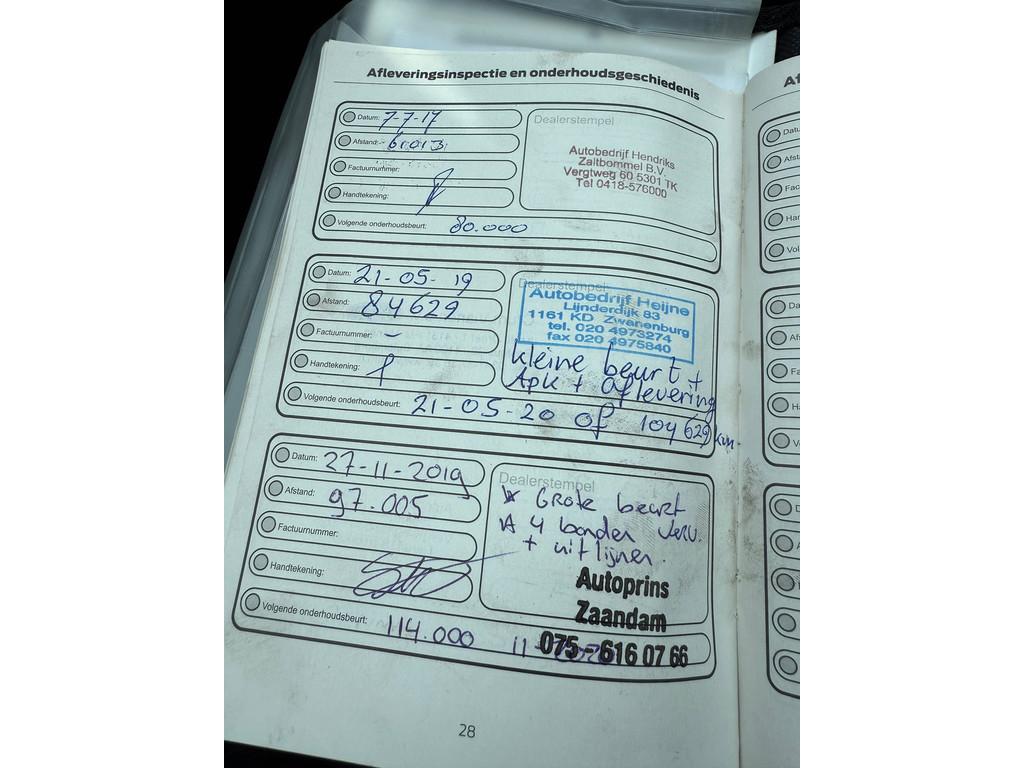 Afleveringsinspectie en onderhoudsgeschiedenis
Datum: 7-7-17
Afstand:
Factuurnummer:
Handtekening:
Volgende onderhoudsbeurt: 80.000
Dealerstempel
Autobedrijf Hendriks
Zaltbommel B.V.
Vergtweg 60 5301 TK
Tel 0418-576000
Datum: 21-05-19
Afstand: 84629
Factuurnummer: -
Handtekening:
Volgende onderhoudsbeurt: 21-05-20 of 104629 km.
Dealerstempel
Autobedrijf Heijne
Lijnderdijk 83
1161 KD Zwanenburg
tel. 020 4973274
fax 020 4975840
kleine beurt +
Apk + aflevering
Datum: 27-11-2019
Afstand: 97.005
Factuurnummer:
Handtekening:
Volgende onderhoudsbeurt: 114.000
Dealerstempel
Grote beurt
4 banden verv.
+ uitlijnen
Autoprins
Zaandam
075-616 07 66
28